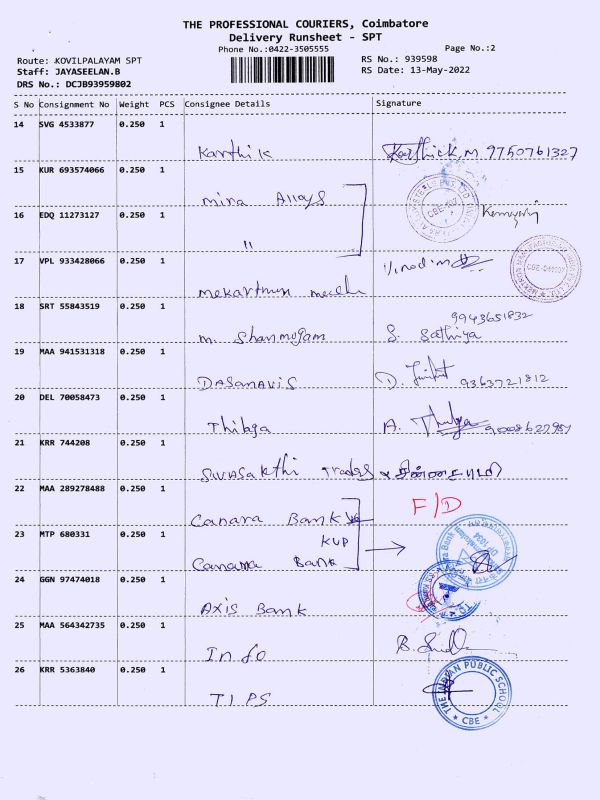 THE PROFESSIONAL COURIERS, Coimbatore
Delivery Runsheet - SPT
Phone No.:0422-3505555
Page No.:2
Route: KOVILPALAYAM SPT
RS No.: 939598
Staff: JAYASEELAN.B
RS Date: 13-May-2022
DRS No.: DCJB93959802
S No Consignment No Weight PCS Consignee Details Signature
14 SVG 4533877 0.250 1
Karthik Karthick.M 9750761327
15 KUR 693574066 0.250 1
mira Alloys
16 EDQ 11273127 0.250 1
"
17 VPL 933428066 0.250 1
18 SRT 55843519 0.250 1
9943651832
m. Shanmugam S. Sathiya
19 MAA 941531318 0.250 1
DASamavis D. 9363721812
20 DEL 70058473 0.250 1
Thilaga A. Thilaga
21 KRR 744208 0.250 1
Sivasakthi Traders
22 MAA 289278488 0.250 1
F/D
Canara Bank
23 MTP 680331 0.250 1
KUP
Canara Bank
24 GGN 97474018 0.250 1
Axis Bank
25 MAA 564342735 0.250 1
Info
26 KRR 5363840 0.250 1
TIPS
THE INDIAN PUBLIC SCHOOL
CBE